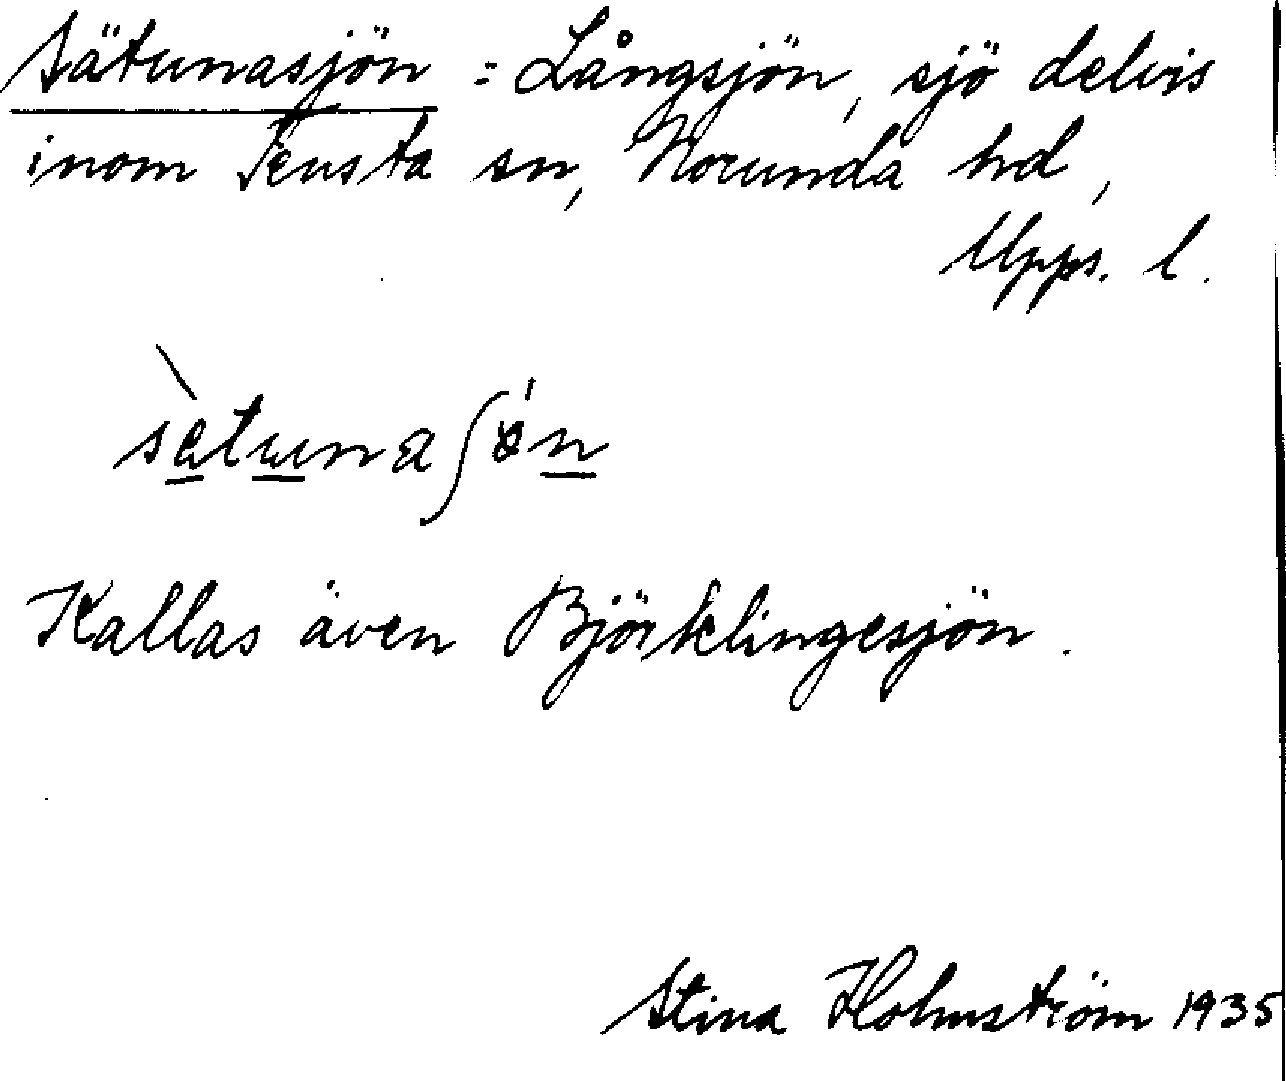 Sätunasjön = Långsjön, sjö delvis
inom Tensta sn, Norunda hd,
Upps. l.
sètunaʃön
Kallas även Björklingesjön.
Stina Holmström 1935